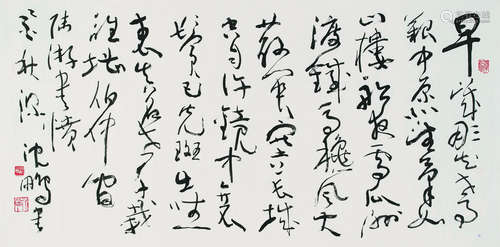 早歲那知世事
艱中原北望氣如
山樓船夜雪瓜洲
渡鐵馬穐風大
散關塞上長城
空自許鏡中衰
鬢已先斑出師一
表真名世千載
誰堪伯仲間
陸游書憤
秋深沈鵬書